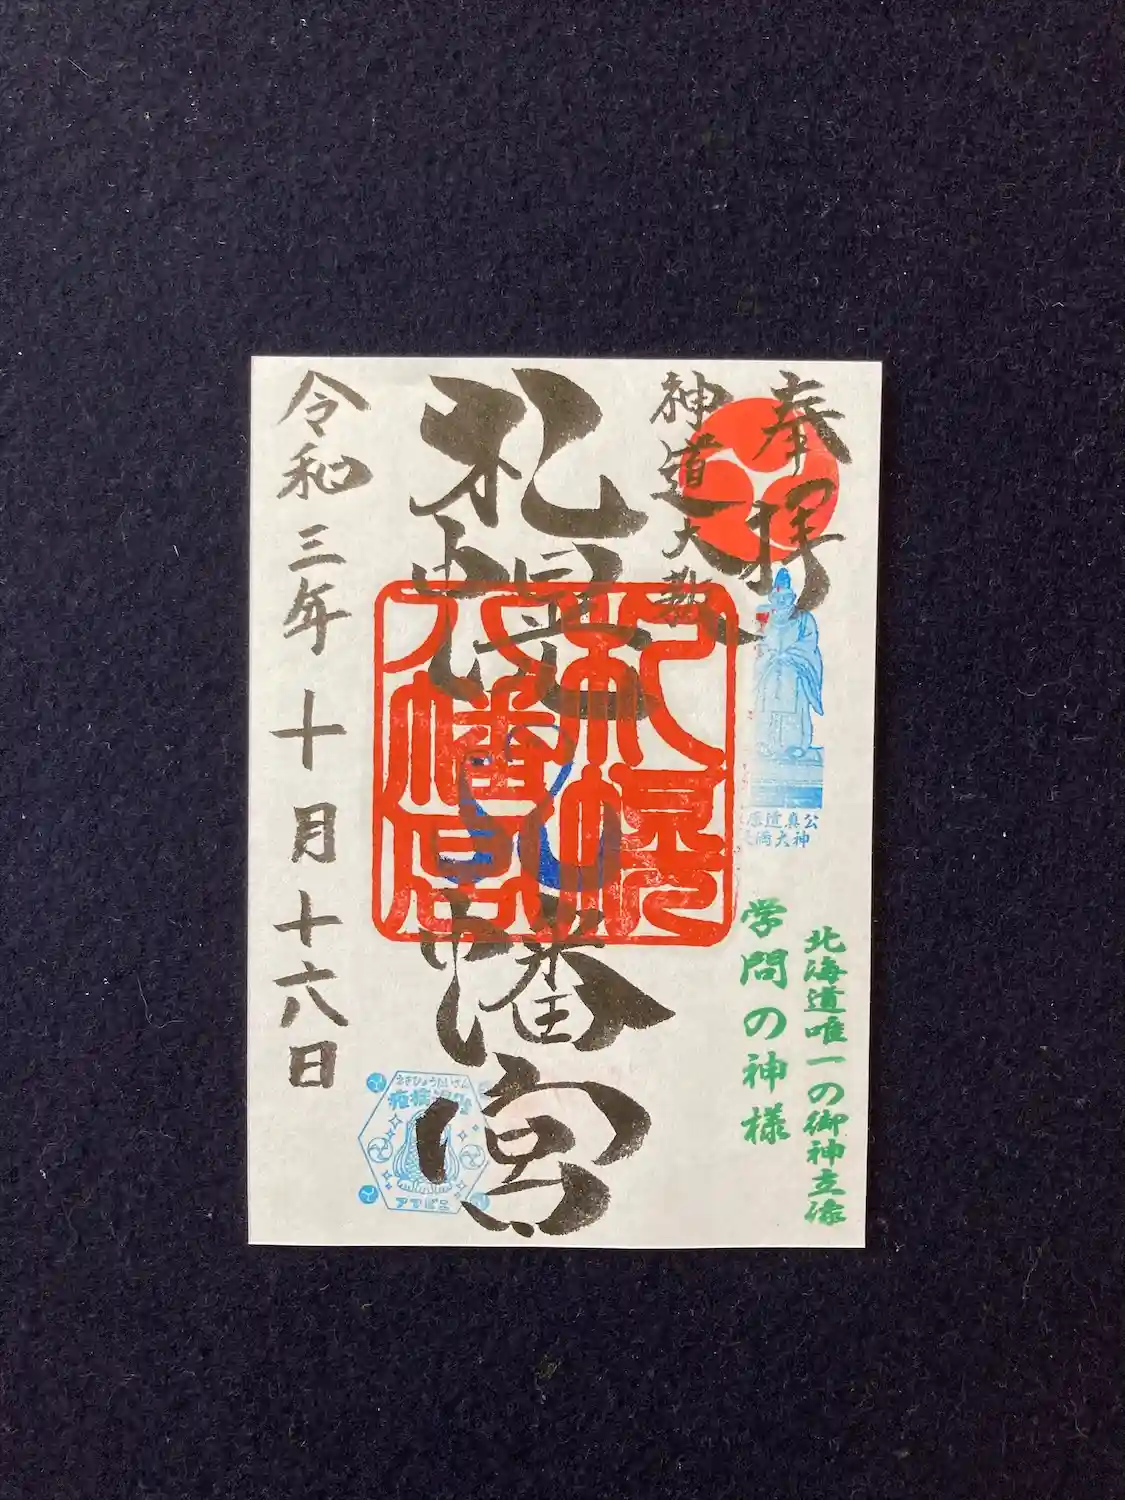 奉拝
神道大教
札幌八幡宮
札幌
八幡宮
令和三年十月十六日
道真公
大神
北海道唯一の御神立像
学問の神様
アマビエ